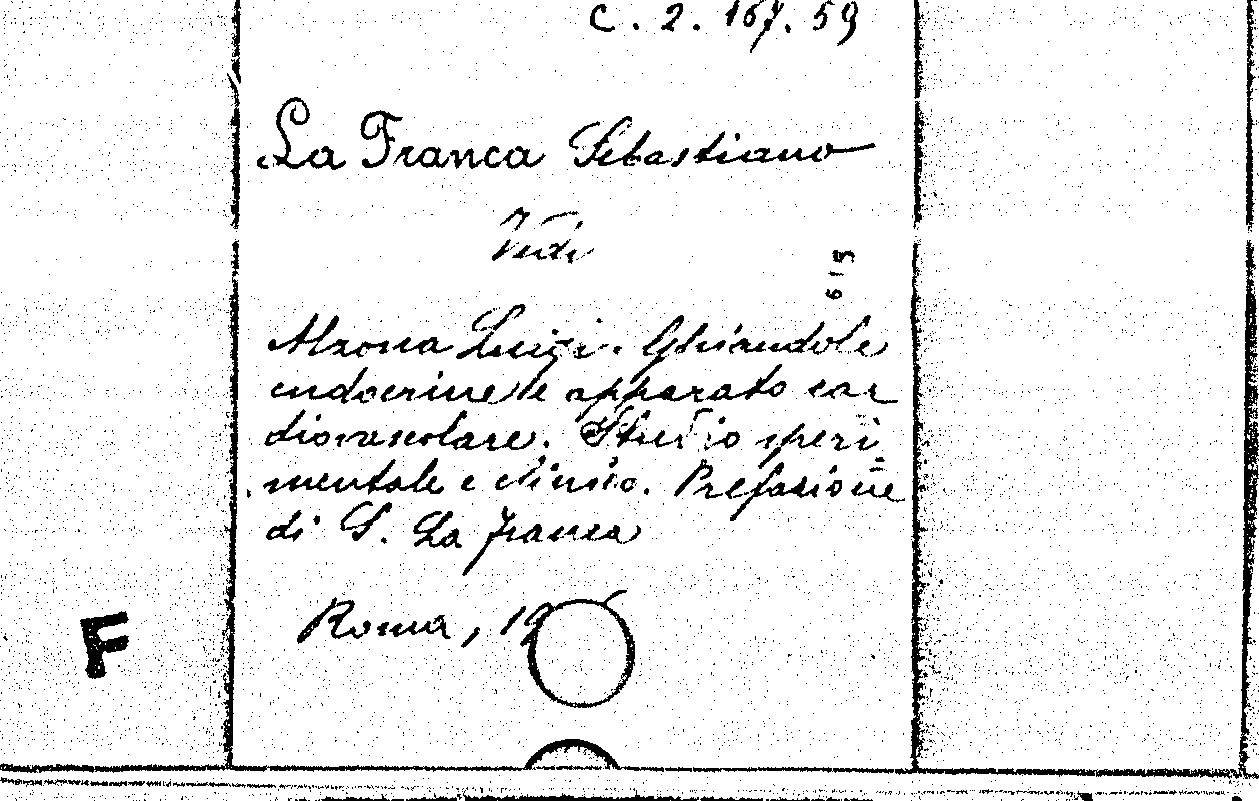 C. 2. 167. 59
La Franca Sebastiano
Vedi
615
Alzona Luigi. Ghiandole
endocrine e apparato car
diovascolare. Studio speri
mentale e clinico. Prefazione
di S. La Franca
Roma, 19
F